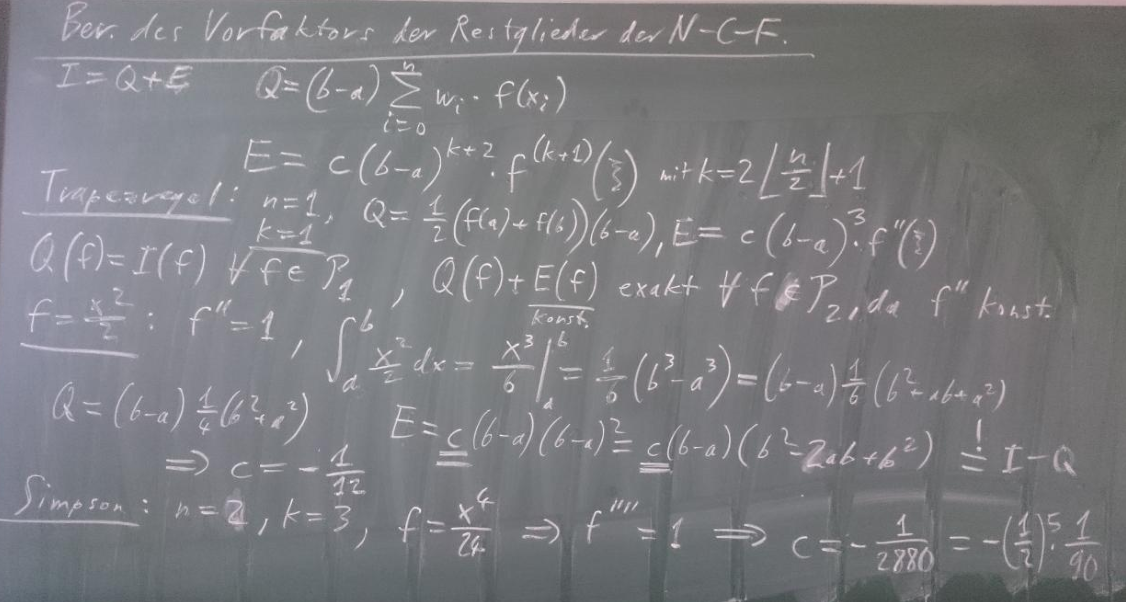 Ber. des Vorfaktors der Restglieder der N-C-F.
I = Q+E   Q = (b-a) ∑_{i=0}^{n} w_i · f(x_i)
E = c(b-a)^{k+2} · f^{(k+1)}(ξ) mit k = 2⌊n/2⌋+1
Trapezregel: n=1, k=1   Q = 1/2 (f(a)+f(b))(b-a), E = c(b-a)^3 · f''(ξ)
Q(f) = I(f) ∀ f ∈ P_1, Q(f)+E(f) exakt ∀ f ∈ P_2, da f'' konst.
konst.
f = x^2/2 : f'' = 1, ∫_a^b x^2/2 dx = x^3/6 |_a^b = 1/6 (b^3-a^3) = (b-a) 1/6 (b^2+ab+a^2)
Q = (b-a) 1/4 (b^2+a^2)   E = c(b-a)(b-a)^2 = c(b-a)(b^2-2ab+b^2) =! I-Q
⇒ c = -1/12
Simpson: n=2, k=3, f = x^4/24 ⇒ f'''' = 1 ⇒ c = -1/2880 = -(1/2)^5 · 1/90